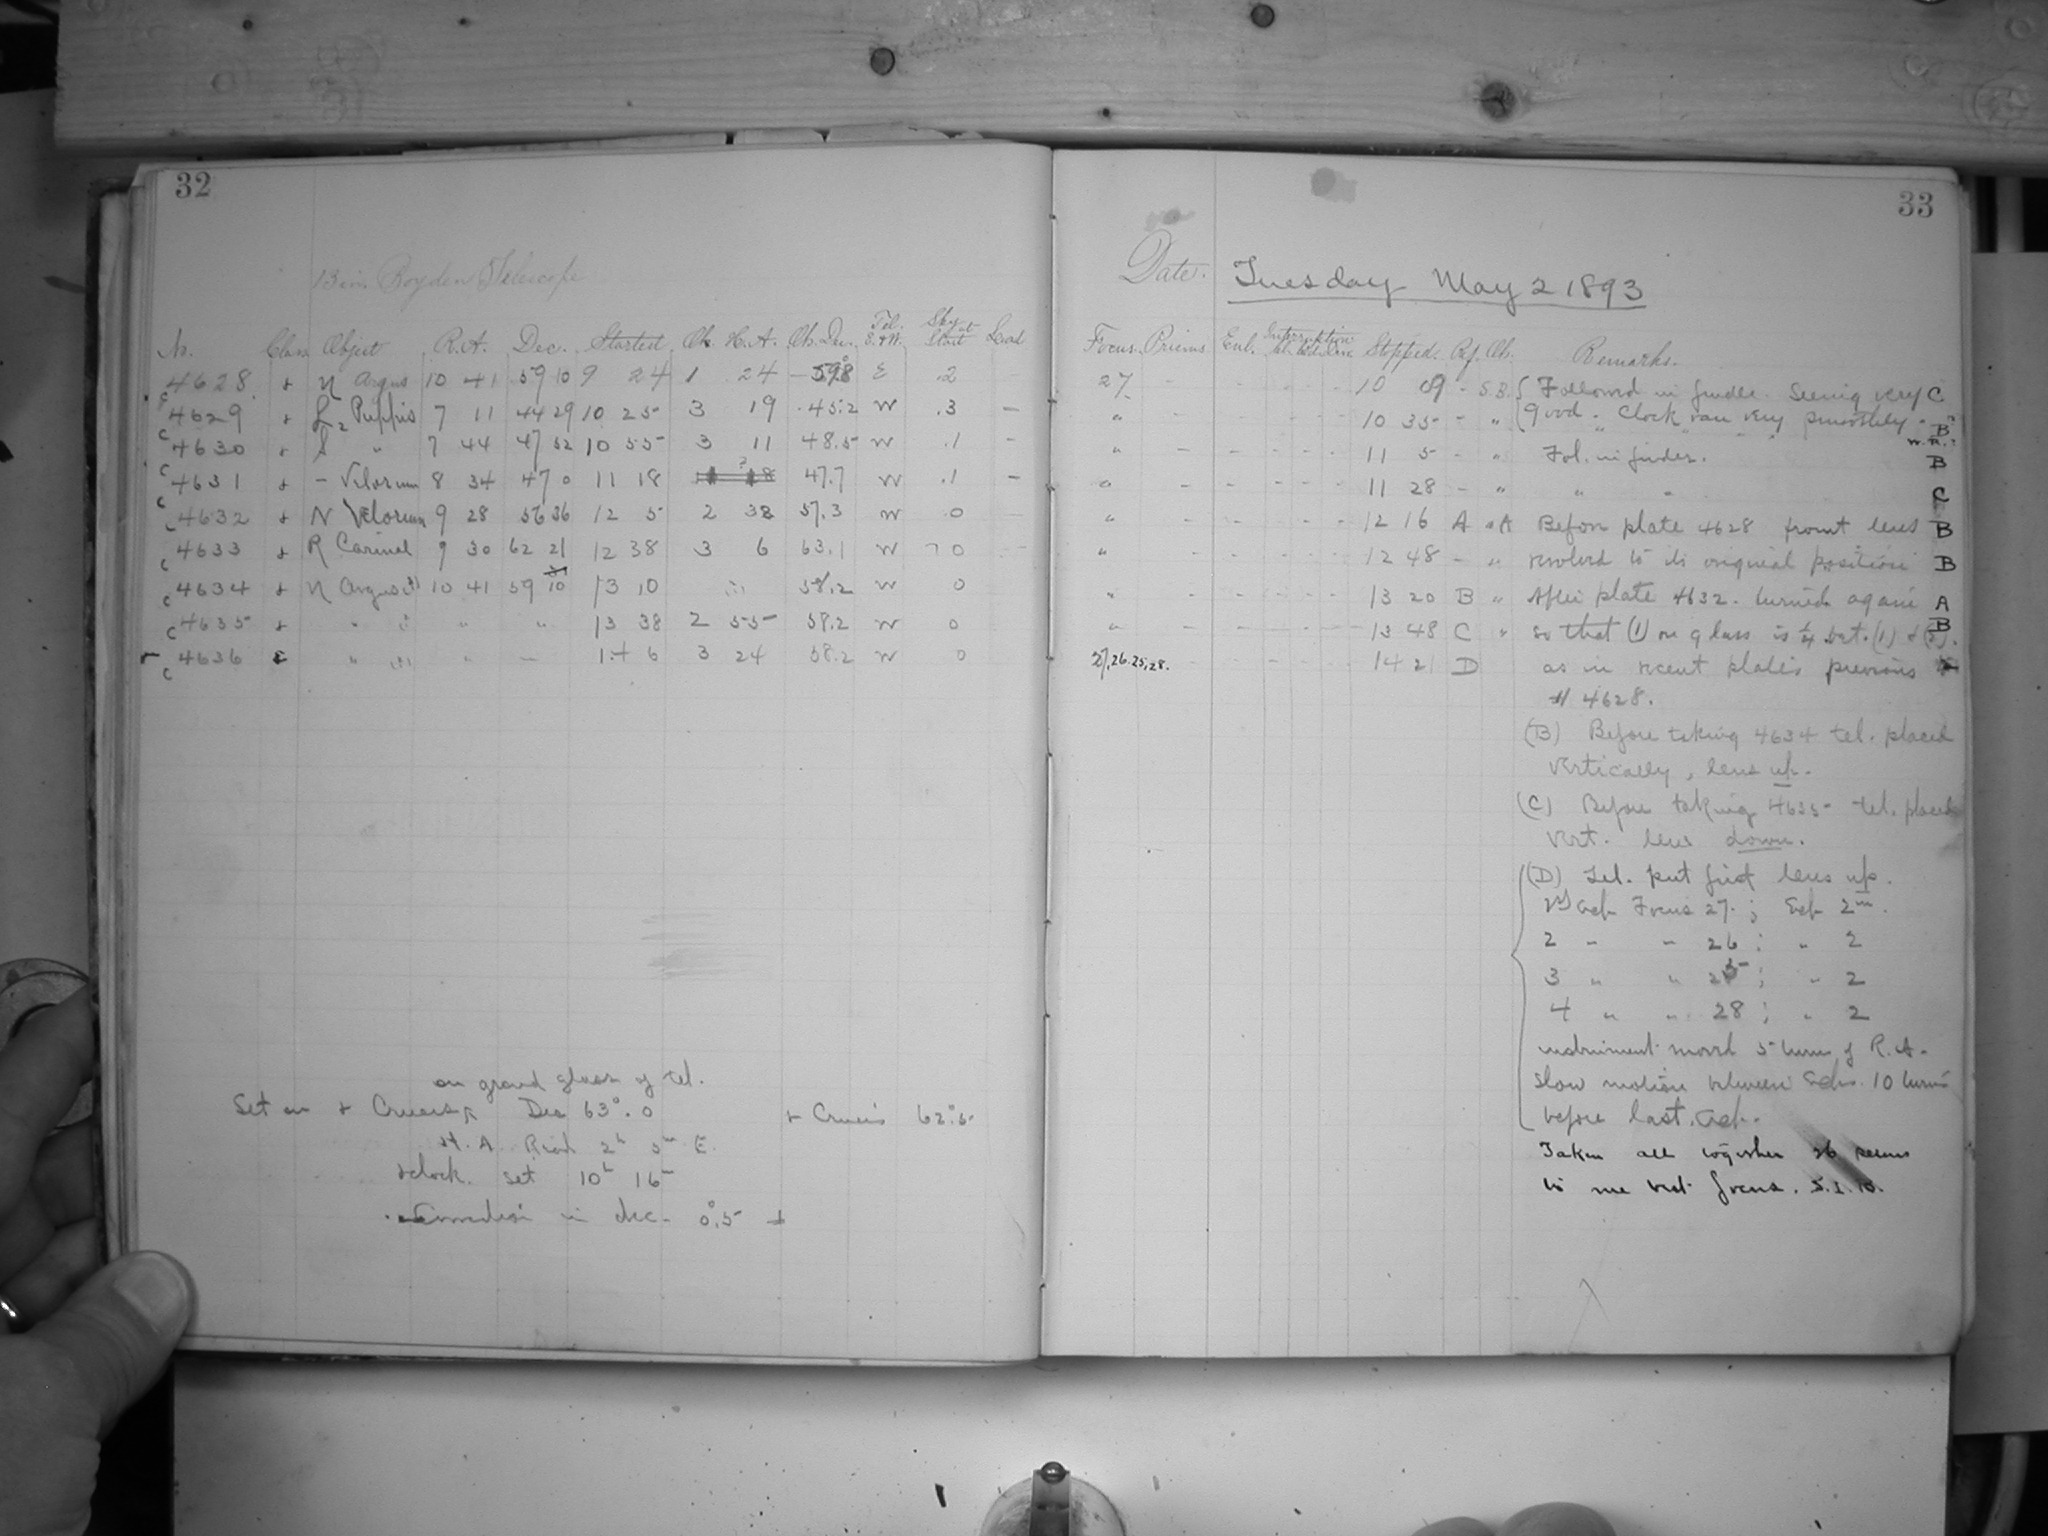 32
13 in. Boyden Telescope
No. Class Object R.A. Dec. Started Ob. H.A. Ob. Dec. Tel. E. or W. Sky at Start Lead
4628 η Argus 10 41 59 10 9 24 1 24 59.8 E .2
c 4629 L2 Puppis 7 11 44 29 10 25 3 19 45.2 W .3 -
c 4630 S " 7 44 47 52 10 55 3 11 48.5 W .1 -
c 4631 - Velorum 8 34 47 0 11 18 47.7 W .1 -
c 4632 N Velorum 9 28 56 36 12 5 2 38 57.3 W 0
c 4633 R Carinae 9 30 62 21 12 38 3 6 63.1 W 0
c 4634 η Argus 10 41 59 10 13 10 58.2 W 0
c 4635 " " " 13 38 2 55 58.2 W 0
c 4636 " " - 14 6 3 24 58.2 W 0
on ground glass of tel.
Set on Crucis Dec 63°.0 Crucis 62°.5
H.A. Read 2h 5m E.
clock set 10h 16m
Correction in dec. 0°.5 +
33
Date. Tuesday May 2 1893
Focus. Prisms Enl. Stopped. Rf. Ob. Remarks.
27 - - - - 10 09 - S.B. { Followed in finder. Seeing very C
" - - - - 10 35 - " { good. Clock ran very smoothly. B?
" - - - - 11 5 - " Fol. in finder. B
" - - - - 11 28 - " " " C
" - - - - 12 16 A " A Before plate 4628 front lens B
" - - - - 12 48 - " revolved to its original position B
" - - - - 13 20 B " After plate 4632. turned again A
" - - - - 13 48 C " so that (1) on glass is ¼ bet. (1) & (2). B
27, 26. 25, 28. - - - - 14 21 D as in recent plates previous
4628.
(B) Before taking 4634 tel. placed
vertically, lens up.
(C) Before taking 4635 tel. placed
vert. lens down.
(D) Tel. put first lens up.
Focus 27; Exp 2m.
2 " " 26; " 2
3 " " 25; " 2
4 " " 28; " 2
instrument moved 5 turns of R.A.
slow motion between Exps. 10 turns
before last Exp.
Taken all together 26 seems
to me best focus. S.I.B.